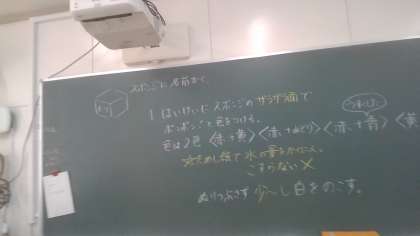 スポンジに名前まで。
1 はいけいをスポンジのザラザラ面で
ポンポンと色をつける。
色は2色〈赤+黄〉〈赤+みどり〉〈赤+青〉〈黄
ためし紙で水の量をかくにん。
こすらない×
ぬりつぶさず 少〜し白をのこす。